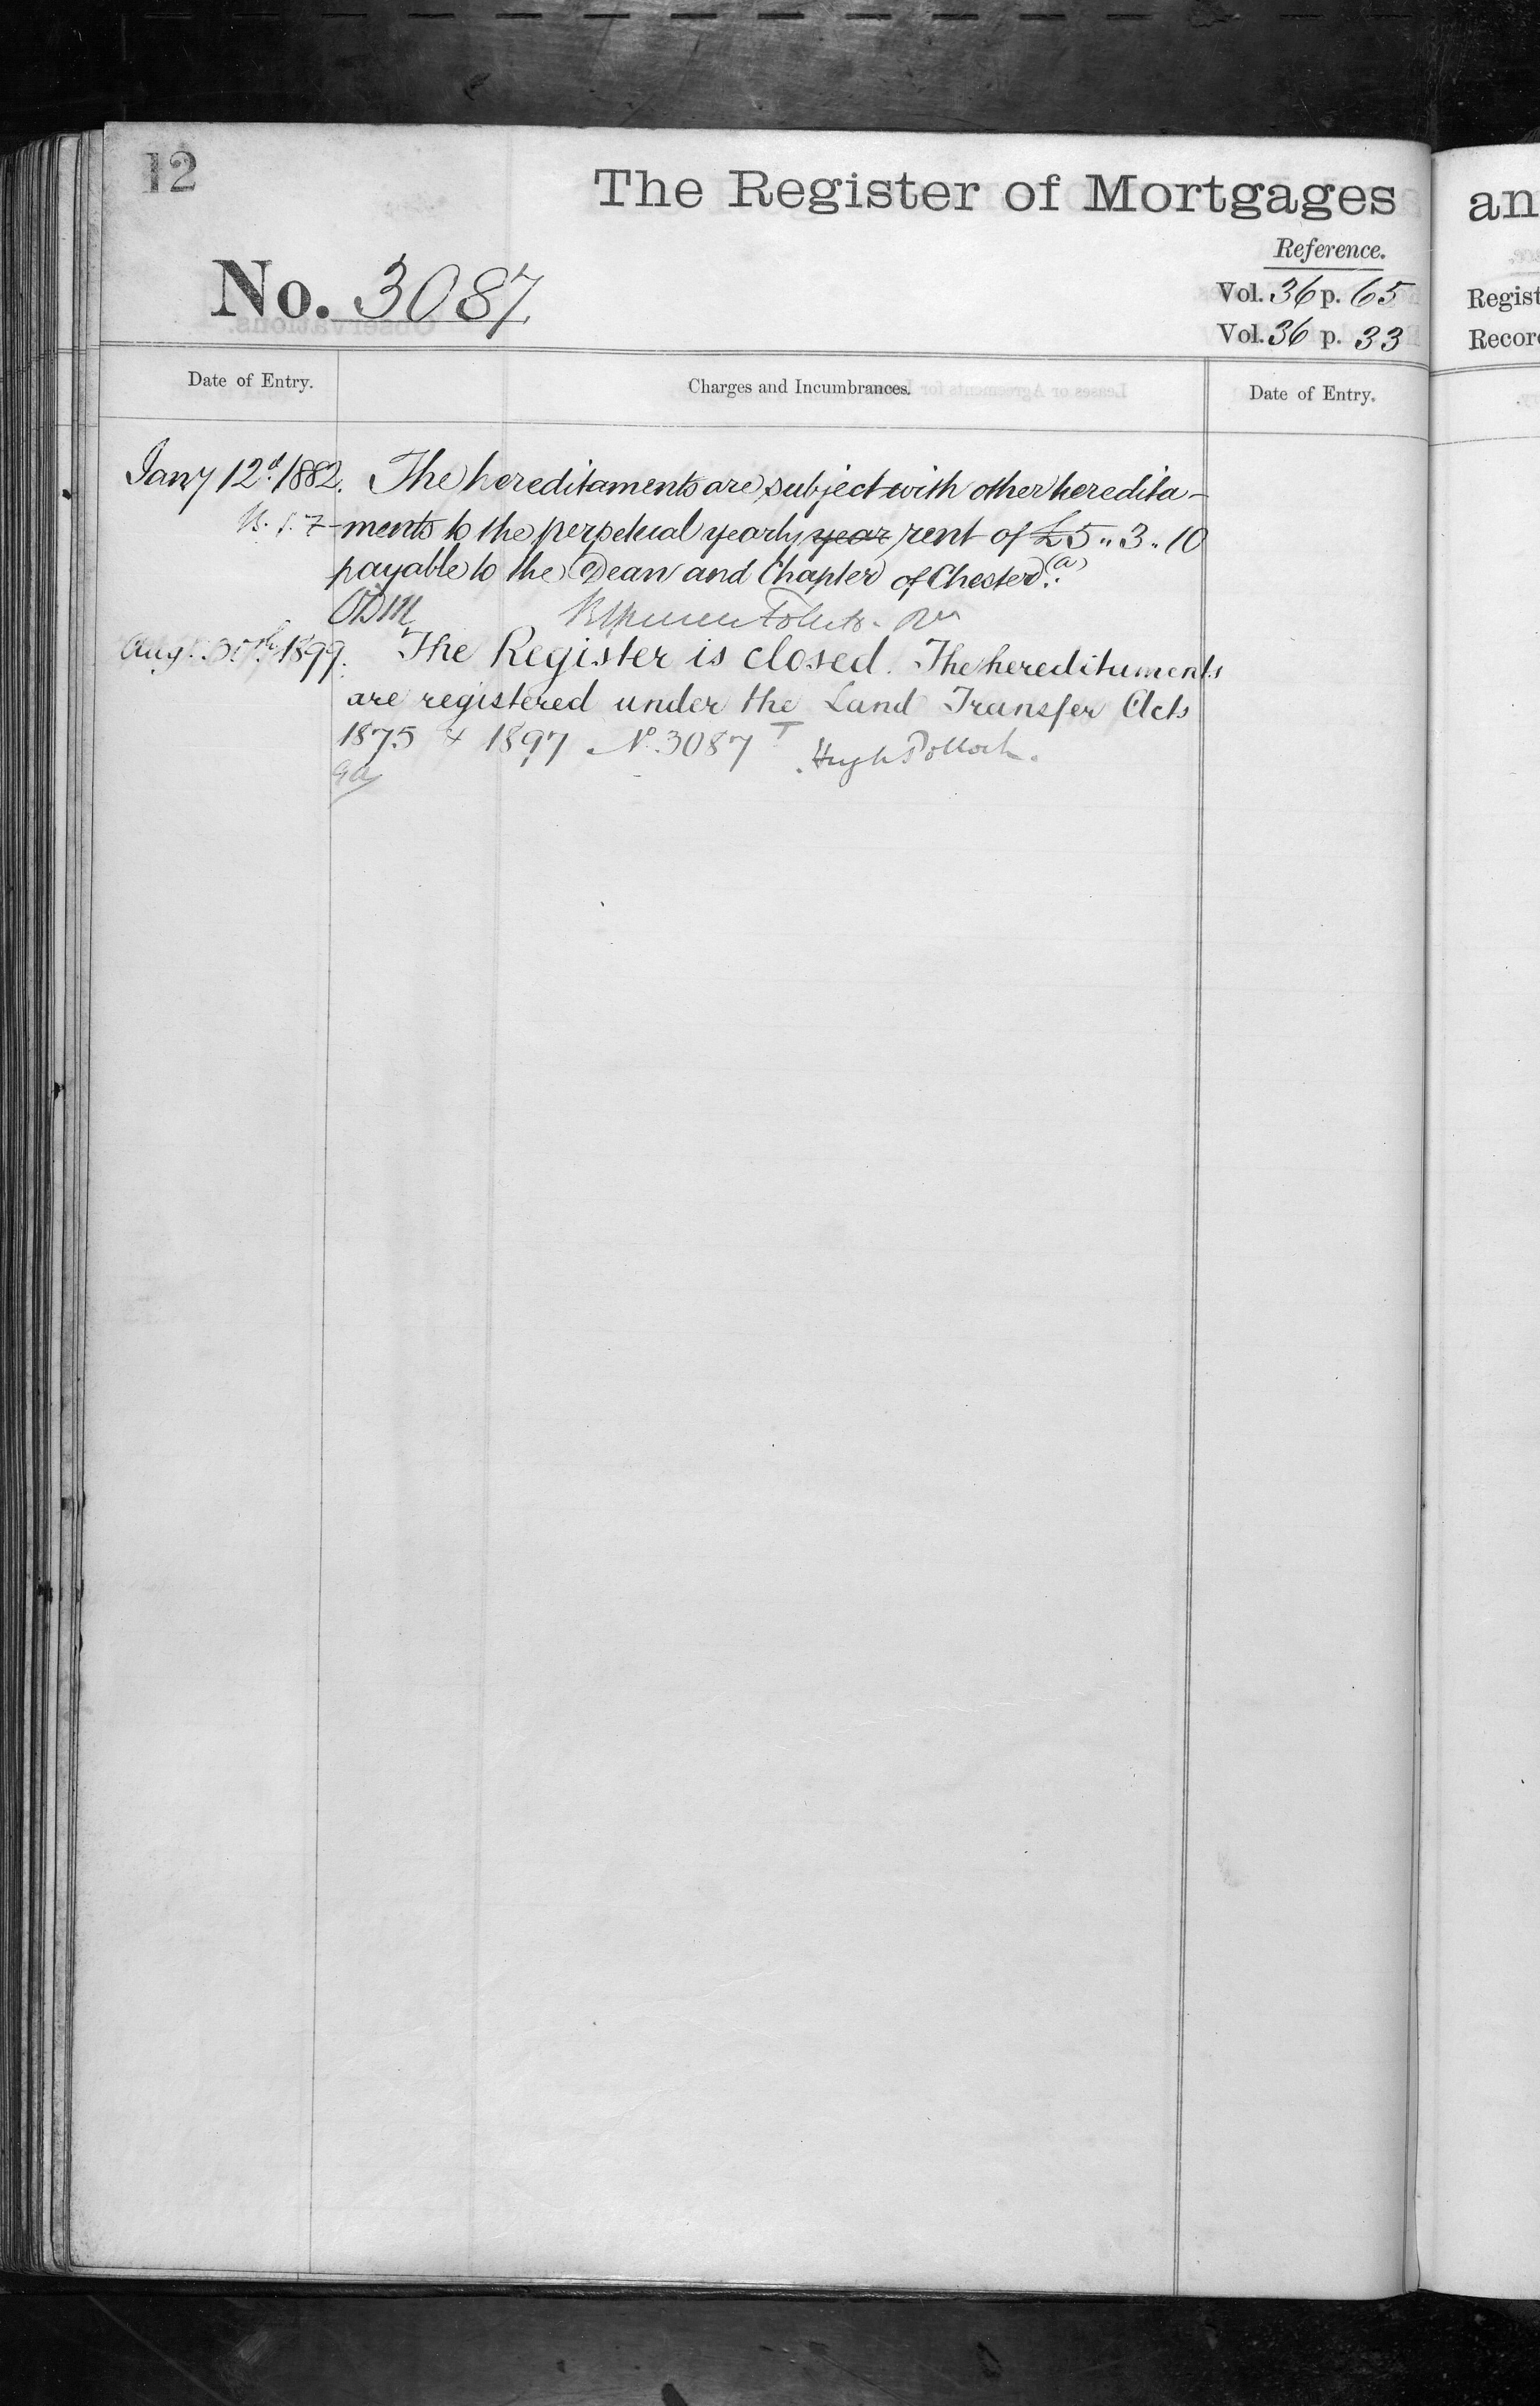 12
The Register of Mortgages
Reference.
No. 3087
Vol. 36 p. 65
Vol. 36 p. 33
Date of Entry.
Charges and Incumbrances.
Date of Entry.
Jany 12th 1882. The hereditaments are subject with other heredita-
ments to the perpetual yearly year rent of £5 „ 3 „ 10
payable to the Dean and Chapter of Chester. (a)
Aug. 1899. The Register is closed. The hereditaments
are registered under the Land Transfer Acts
1875 & 1897 No. 3087 T Hugh Pollock.
an
Regist
Recor